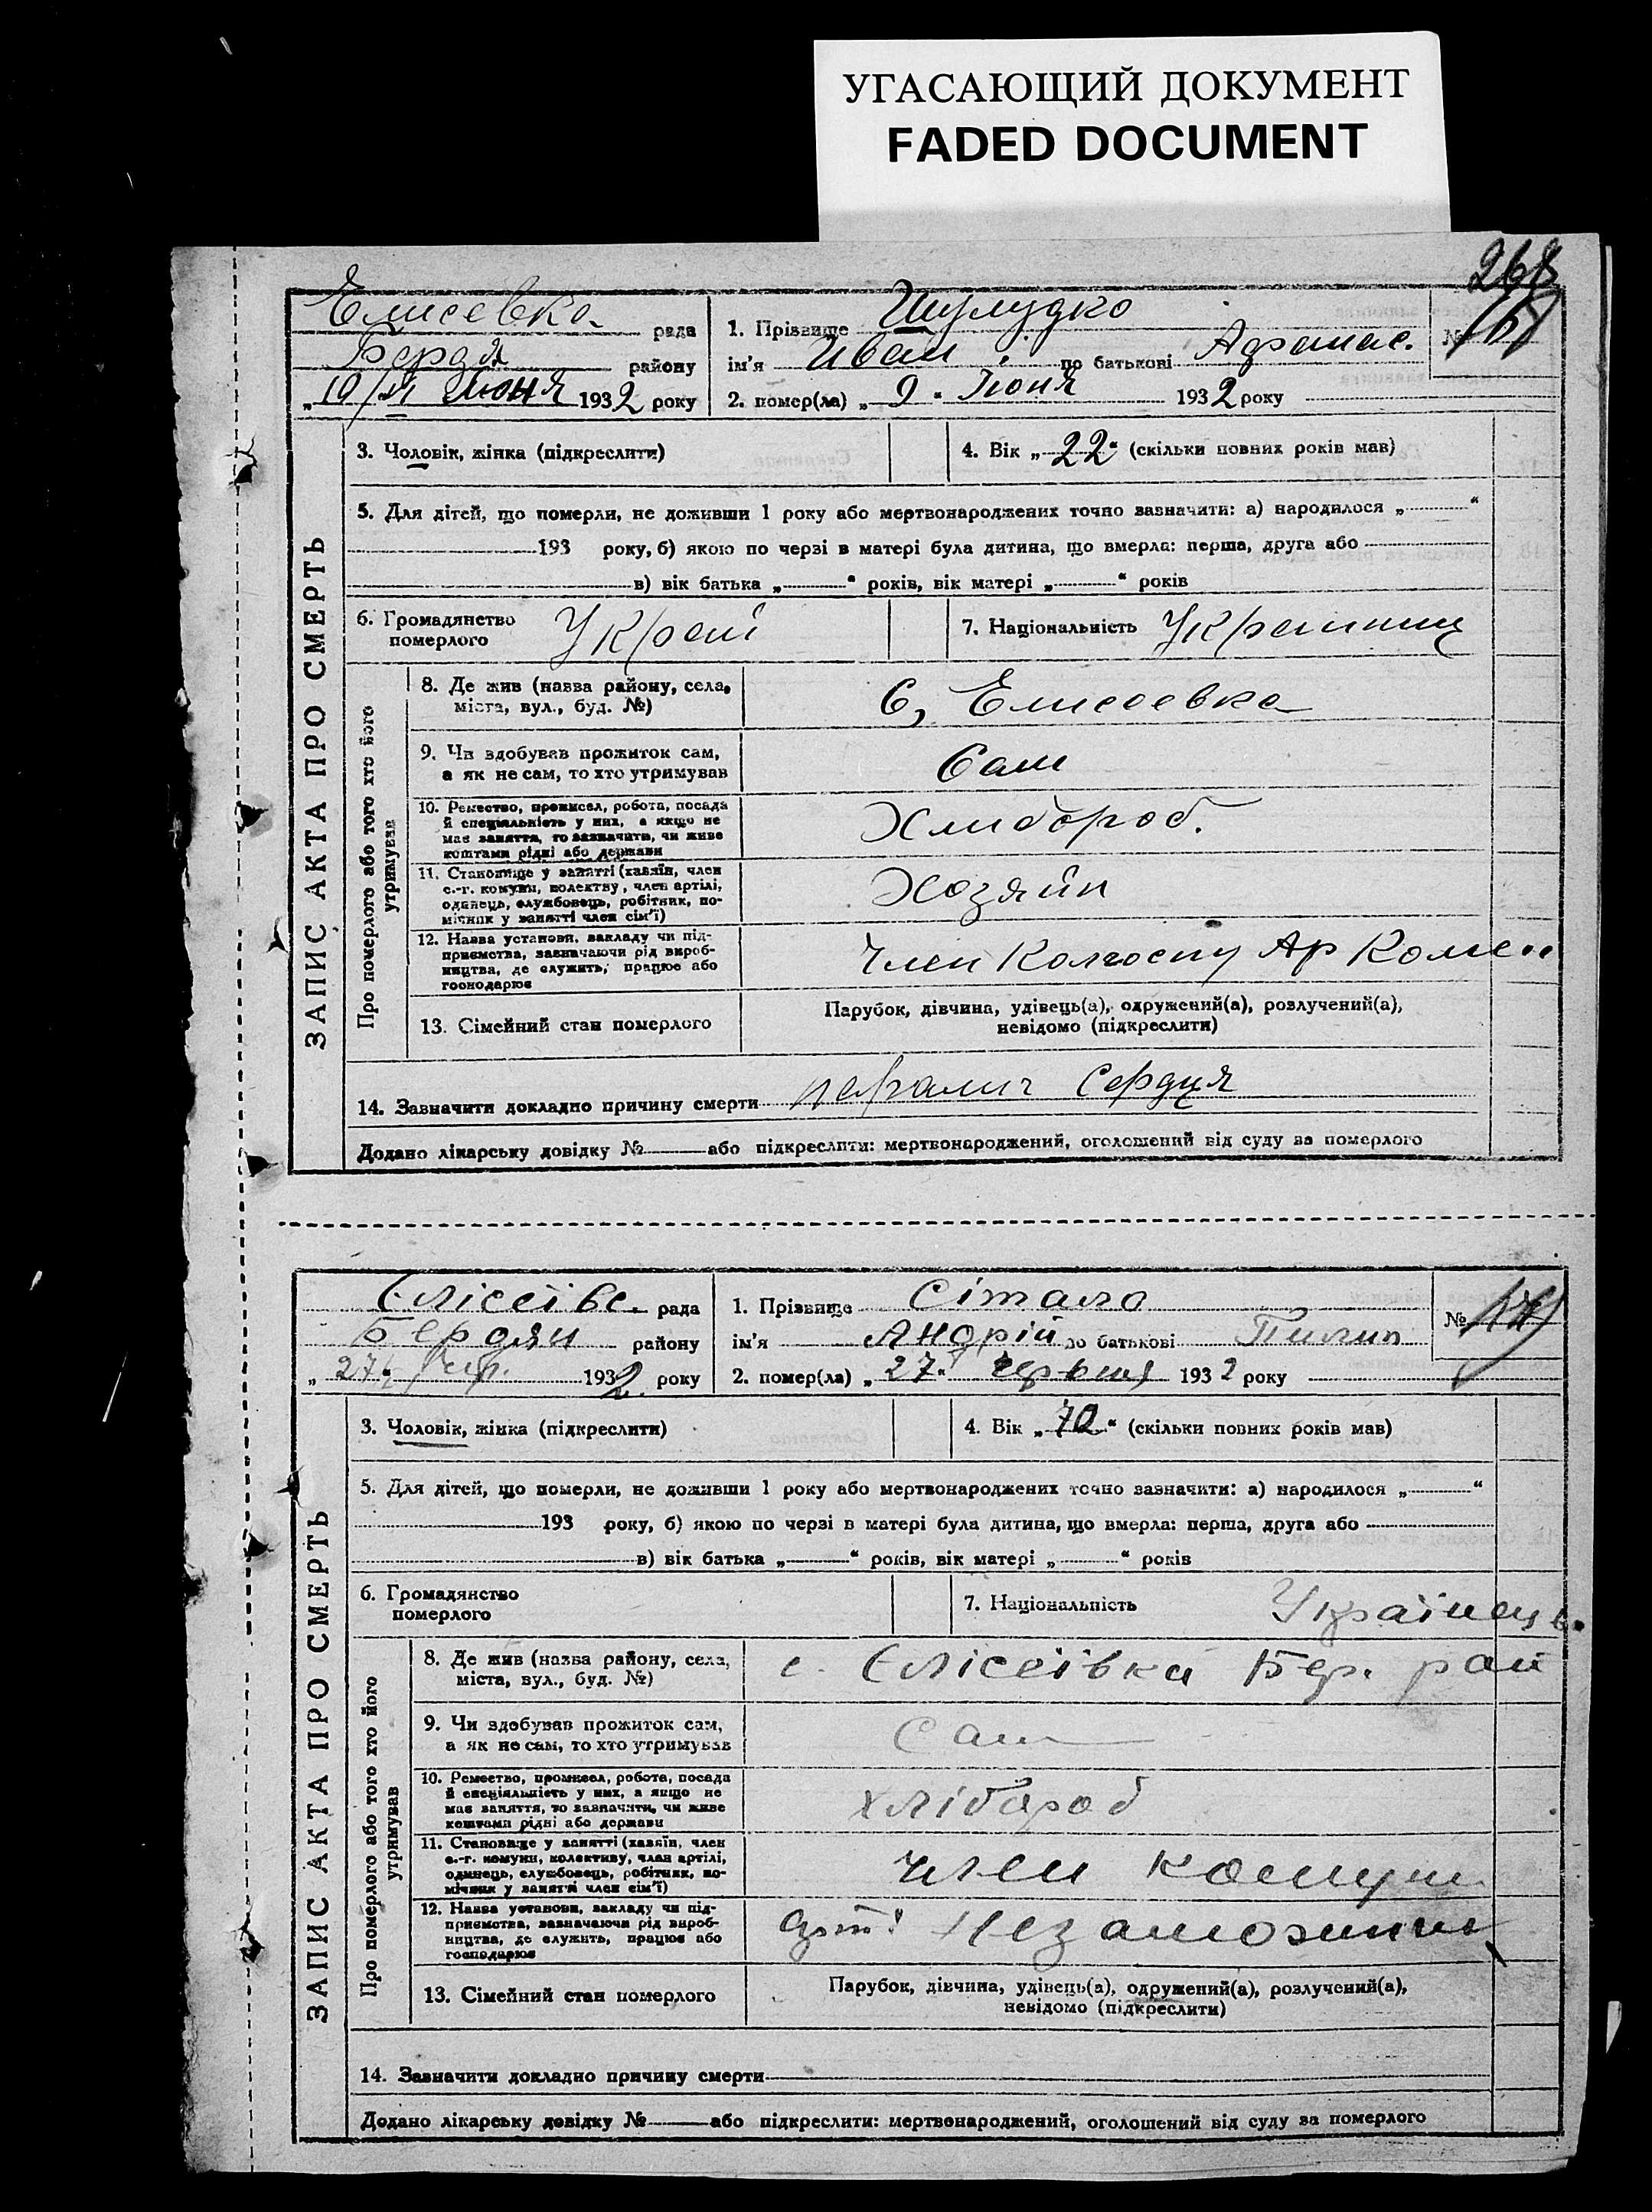 УГАСАЮЩИЙ ДОКУМЕНТ
FADED DOCUMENT
268
Елисеевка рада
Бердя району
„19/VI Июня 1932 року
1. Прізвище Шулудко
ім'я Иван по батькові Афанас.
2. помер(ла) „9“ Июня 1932 року
№
ЗАПИС АКТА ПРО СМЕРТЬ
3. Чоловік, жінка (підкреслити)
4. Вік „22“ (скільки повних років мав)
5. Для дітей, що померли, не доживши 1 року або мертвонароджених точно зазначити: а) народилося „ “
193 року, б) якою по черзі в матері була дитина, що вмерла: перша, друга або
в) вік батька „ “ років, вік матері „ “ років
6. Громадянство
померлого Украї
7. Національність Украинец
Про померлого або того хто його
утримував
8. Де жив (назва району, села,
міста, вул., буд. №)
С, Елисеевка
9. Чи здобував прожиток сам,
а як не сам, то хто утримував
Сам
10. Ремество, промисел, робота, посада
й спеціяльність у них, а якщо не
має заняття, то зазначити, чи живе
коштами рідні або держави
Хлибороб.
11. Становище у занятті (хазяїн, член
с.-г. комуни, колектву, член артілі,
одинець, службовець, робітник, по-
мічник у занятті член сім'ї)
Хозяйн
12. Назва установи, закладу чи під-
приємства, зазначаючи рід вироб-
ництва, де служить, працює або
господарює
Член Колгоспу Ар
13. Сімейний стан померлого
Парубок, дівчина, удівець(а), одружений(а), розлучений(а),
невідомо (підкреслити)
14. Зазначити докладно причину смерти паралич Сердця
Додано лікарську довідку № або підкреслити: мертвонароджений, оголошений від суду за померлого
Єлісеївс. рада
Бердян району
„27“ Чер. 1932 року
1. Прізвище Сітало
ім'я Андрій по батькові Пилип
2. помер(ла) „27“ червня 1932 року
№
ЗАПИС АКТА ПРО СМЕРТЬ
3. Чоловік, жінка (підкреслити)
4. Вік „70“ (скільки повних років мав)
5. Для дітей, що померли, не доживши 1 року або мертвонароджених точно зазначити: а) народилося „ “
193 року, б) якою по черзі в матері була дитина, що вмерла: перша, друга або
в) вік батька „ “ років, вік матері „ “ років
6. Громадянство
померлого
7. Національність Українець.
Про померлого або того хто його
утримував
8. Де жив (назва району, села,
міста, вул., буд. №)
с. Єлісеївка Бер. рай
9. Чи здобував прожиток сам,
а як не сам, то хто утримував
Сам
10. Ремество, промисел, робота, посада
й спеціяльність у них, а якщо не
має заняття, то зазначити, чи живе
коштами рідні або держави
хлібороб
11. Становище у занятті (хазяїн, член
с.-г. комуни, колективу, член артілі,
одинець, службовець, робітник, по-
мічник у занятті член сім'ї)
член комун
12. Назва установи, закладу чи під-
приємства, зазначаючи рід вироб-
ництва, де служить, працює або
господарює
арт. Незаможник
13. Сімейний стан померлого
Парубок, дівчина, удівець(а), одружений(а), розлучений(а),
невідомо (підкреслити)
14. Зазначити докладно причину смерти
Додано лікарську довідку № або підкреслити: мертвонароджений, оголошений від суду за померлого